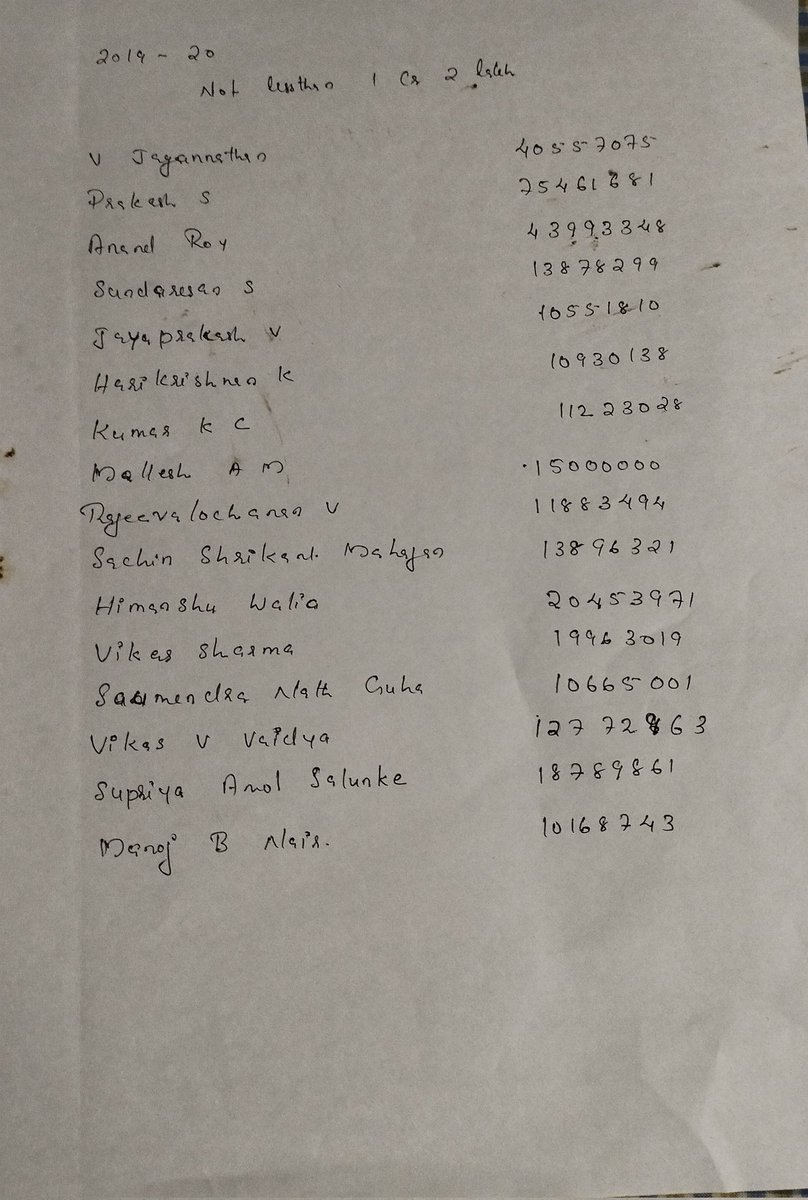 2019 - 20
Not lessthan 1 Cr 2 lakh
V Jagannathan 40557075
Prakash S 75461681
Anand Roy 43993348
Sundaresan S 13878299
Jayaprakash V 10551810
Harikrishnan K 10930138
Kumar K C 11223028
Mallesh A M 15000000
Rajeevalochanan V 11883494
Sachin Shrikant Mahajan 13896321
Himanshu Walia 20453971
Vikas Sharma 19963019
Saumendra Nath Guha 10665001
Vikas V Vaidya 12772863
Supriya Amol Salunke 18789861
Manoj B Nair. 10168743